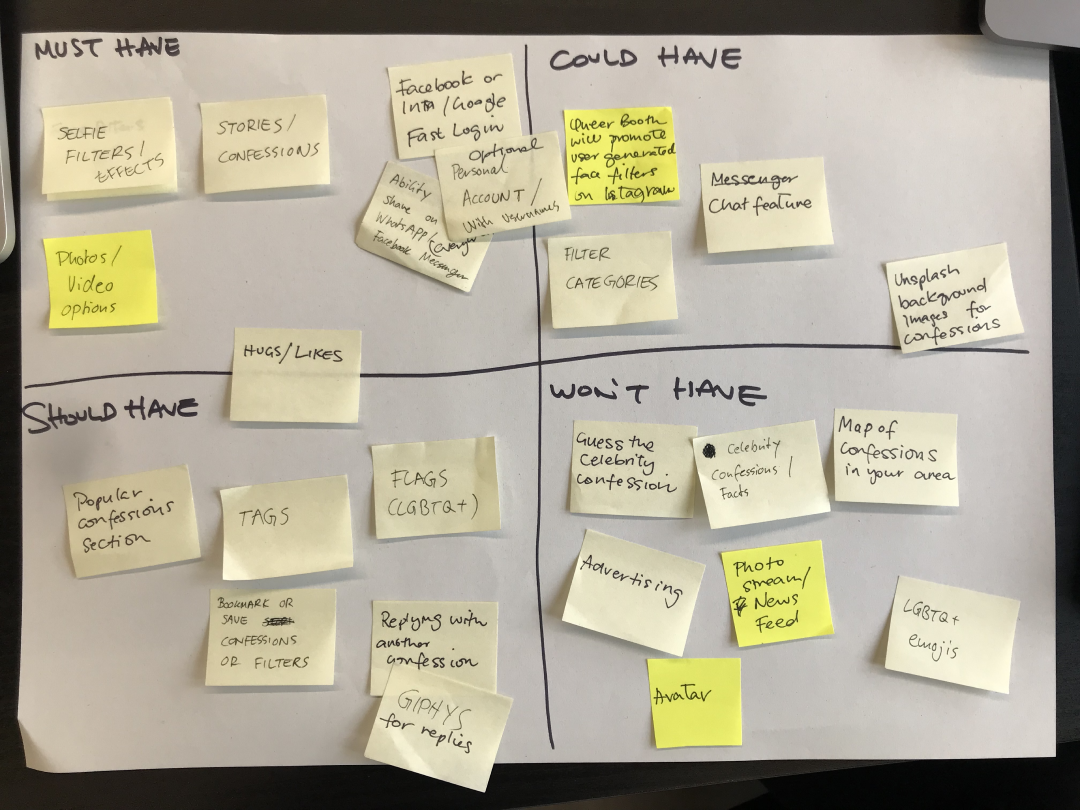 MUST HAVE
SELFIE
FILTERS/
EFFECTS
STORIES/
CONFESSIONS
Facebook or
Insta/Google
Fast Login
Optional
Personal
ACCOUNT/
With Usernames
Ability
share on
WhatsApp/
Facebook Messenger
Photos/
Video
options
HUGS/LIKES
COULD HAVE
Queer Booth
will promote
user generated
face filters
on Istagram
Messenger
Chat feature
FILTER
CATEGORIES
Unsplash
background
images for
confessions
SHOULD HAVE
Popular
confessions
section
TAGS
FLAGS
(LGBTQ+)
BOOKMARK OR
SAVE
CONFESSIONS
OR FILTERS
Replying with
another
confession
GIPHYS
for replies
WON'T HAVE
Guess the
Celebrity
confession
Celebrity
Confessions/
Facts
Map of
Confessions
in your area
Advertising
Photo
stream/
News
Feed
LGBTQ+
emojis
Avatar